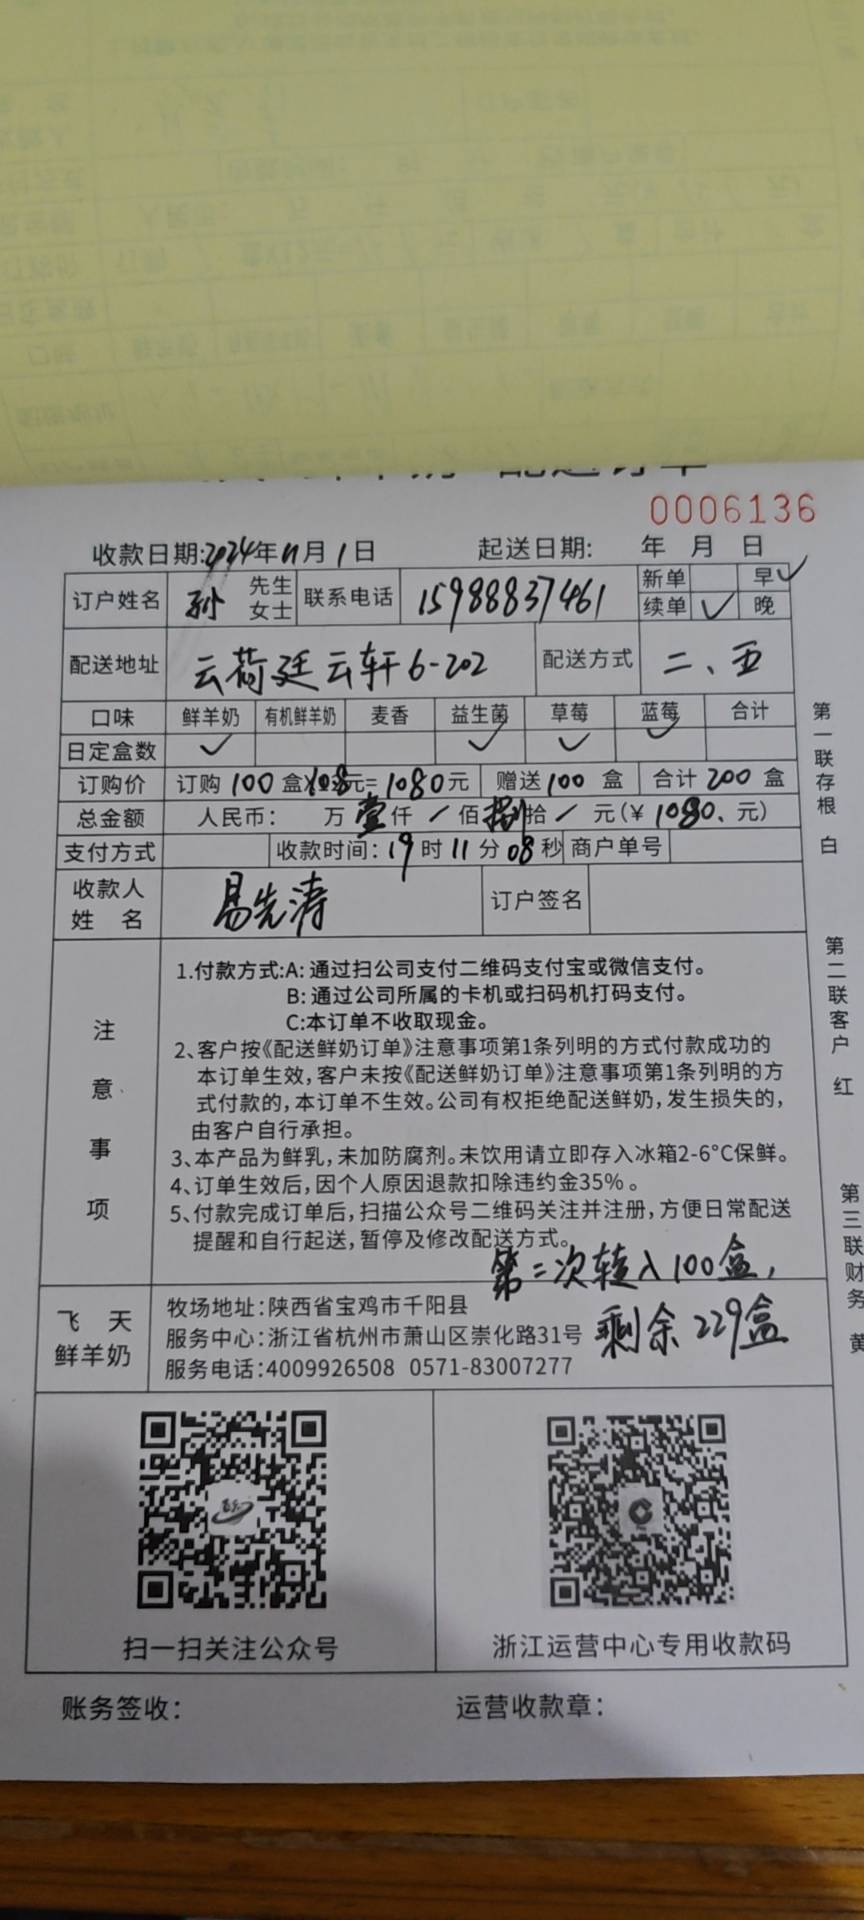 配送订单
0006136
收款日期:2024年11月1日 起送日期: 年 月 日
订户姓名 孙 先生 女士 联系电话 15988837461 新单 早✓
续单 ✓ 晚
配送地址 云荷廷云轩6-202 配送方式 二、五
口味 鲜羊奶 有机鲜羊奶 麦香 益生菌 草莓 蓝莓 合计
日定盒数 ✓ ✓ ✓ ✓
订购价 订购100盒×10.8元=1080元 赠送100盒 合计200盒
总金额 人民币: 万壹仟/佰捌拾/元(¥1080.元)
支付方式 收款时间:19时11分08秒 商户单号
收款人姓名 易先涛 订户签名
注意事项
1.付款方式:A:通过扫公司支付二维码支付宝或微信支付。
B:通过公司所属的卡机或扫码机打码支付。
C:本订单不收取现金。
2、客户按《配送鲜奶订单》注意事项第1条列明的方式付款成功的
本订单生效,客户未按《配送鲜奶订单》注意事项第1条列明的方
式付款的,本订单不生效。公司有权拒绝配送鲜奶,发生损失的,
由客户自行承担。
3、本产品为鲜乳,未加防腐剂。未饮用请立即存入冰箱2-6°C保鲜。
4、订单生效后,因个人原因退款扣除违约金35%。
5、付款完成订单后,扫描公众号二维码关注并注册,方便日常配送
提醒和自行起送,暂停及修改配送方式。
第二次转入100盒,
剩余229盒
飞天
鲜羊奶
牧场地址:陕西省宝鸡市千阳县
服务中心:浙江省杭州市萧山区崇化路31号
服务电话:4009926508 0571-83007277
扫一扫关注公众号
浙江运营中心专用收款码
账务签收: 运营收款章:
第一联存根 白
第二联客户 红
第三联财务 黄